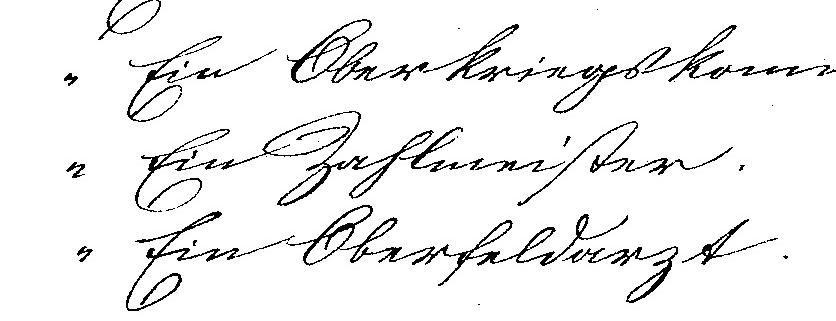 " Ein Oberkriegskom
" Ein Zahlmeister.
" Ein Oberfeldarzt.